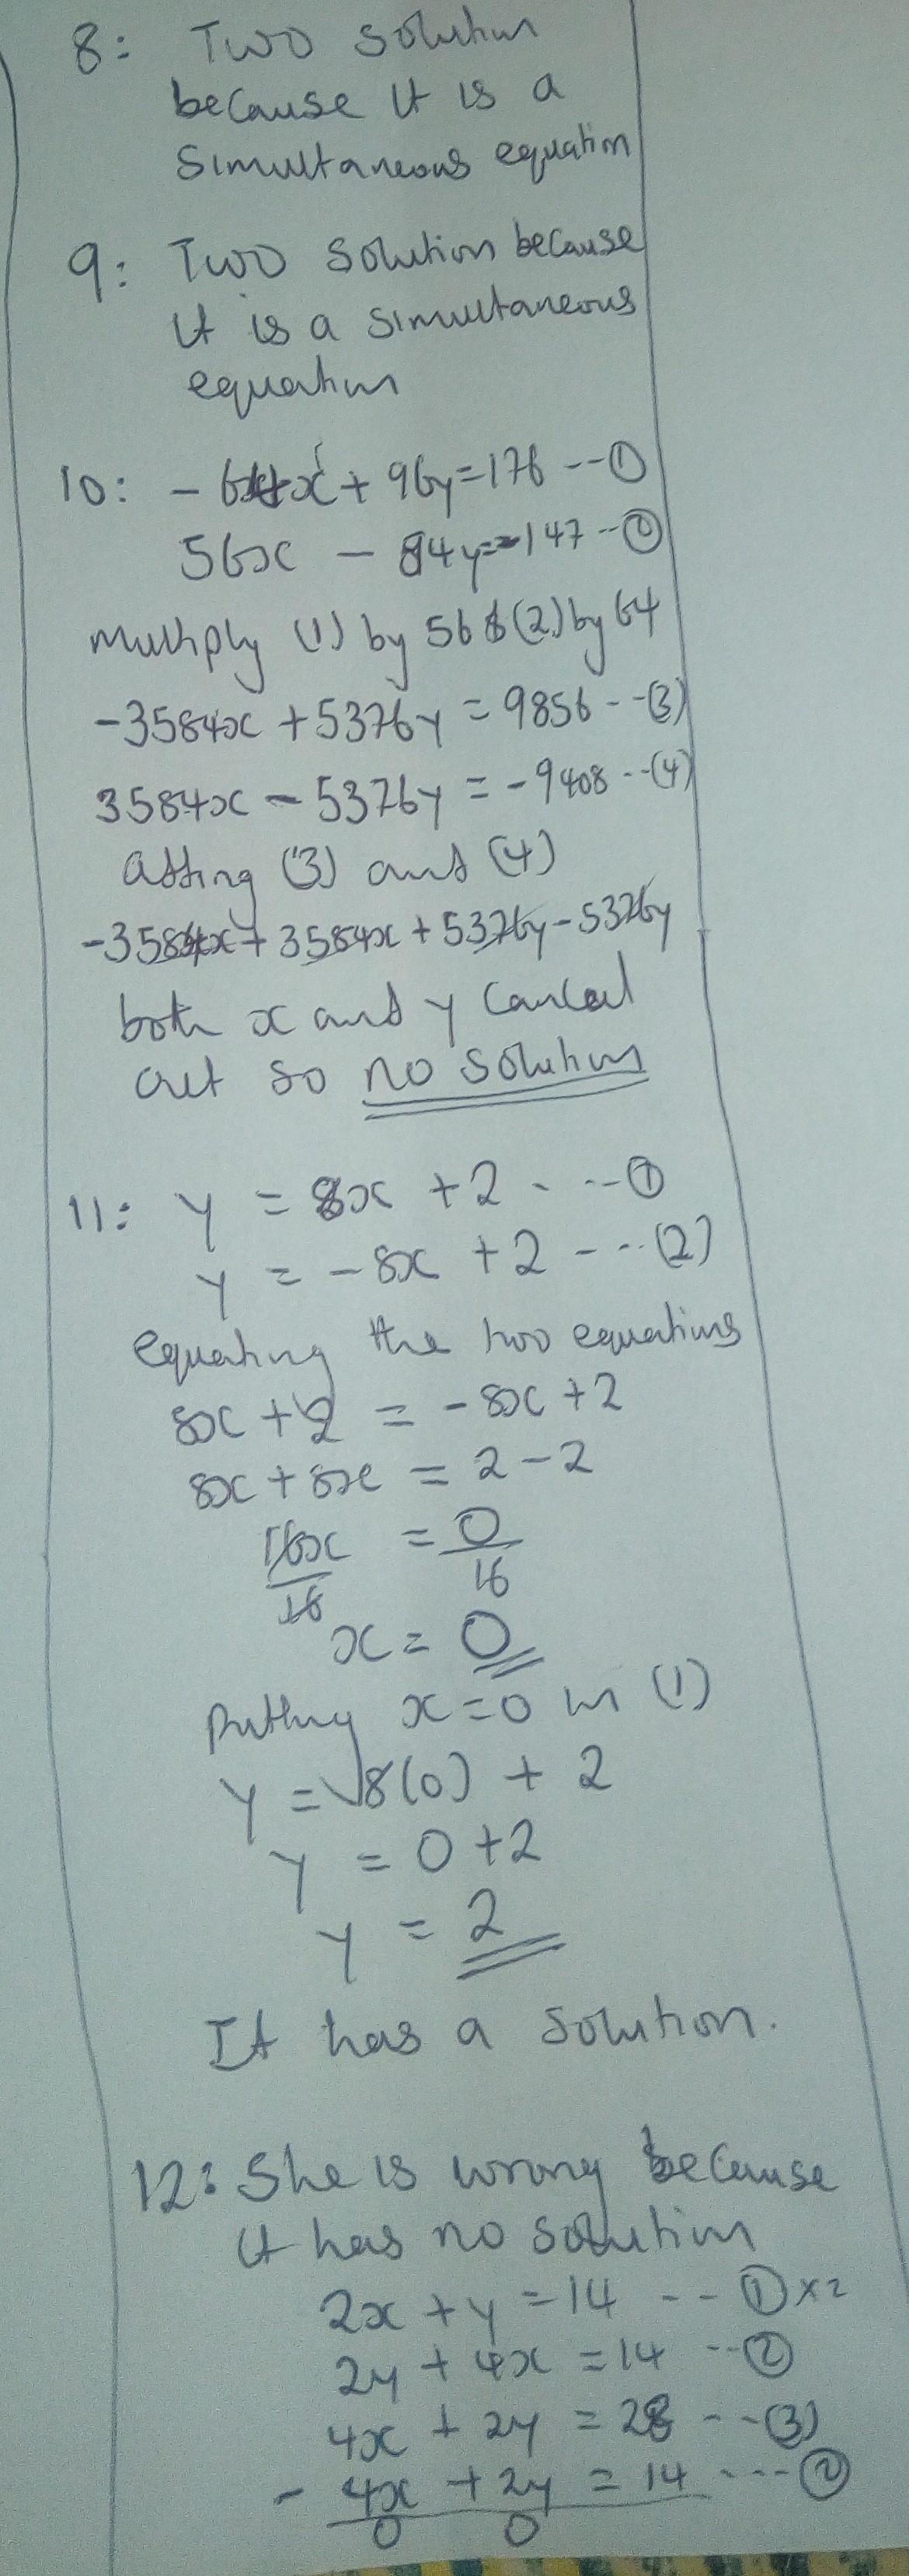 8: Two solution
because it is a
Simultaneous equation
9: Two solution because
it is a simultaneous
equation
10: - 64x + 96y = 176 --①
56x - 84y = -147 --②
Multiply (1) by 56 & (2) by 64
-3584x + 5376y = 9856 --(3)
3584x - 5376y = -9408 --(4)
adding (3) and (4)
-3584x + 3584x + 5376y - 5376y
both x and y cancel
out so no solution
11: y = 8x + 2 - --①
y = -8x + 2 - --(2)
equating the two equations
8x + 2 = -8x + 2
8x + 8x = 2 - 2
16x = 0
16 16
x = 0
Putting x = 0 in (1)
y = 8(0) + 2
y = 0 + 2
y = 2
It has a solution.
12: She is wrong because
it has no solution
2x + y = 14 -- ① x 2
2y + 4x = 14 --②
4x + 2y = 28 --(3)
- 4x + 2y = 14 ---②
0 0